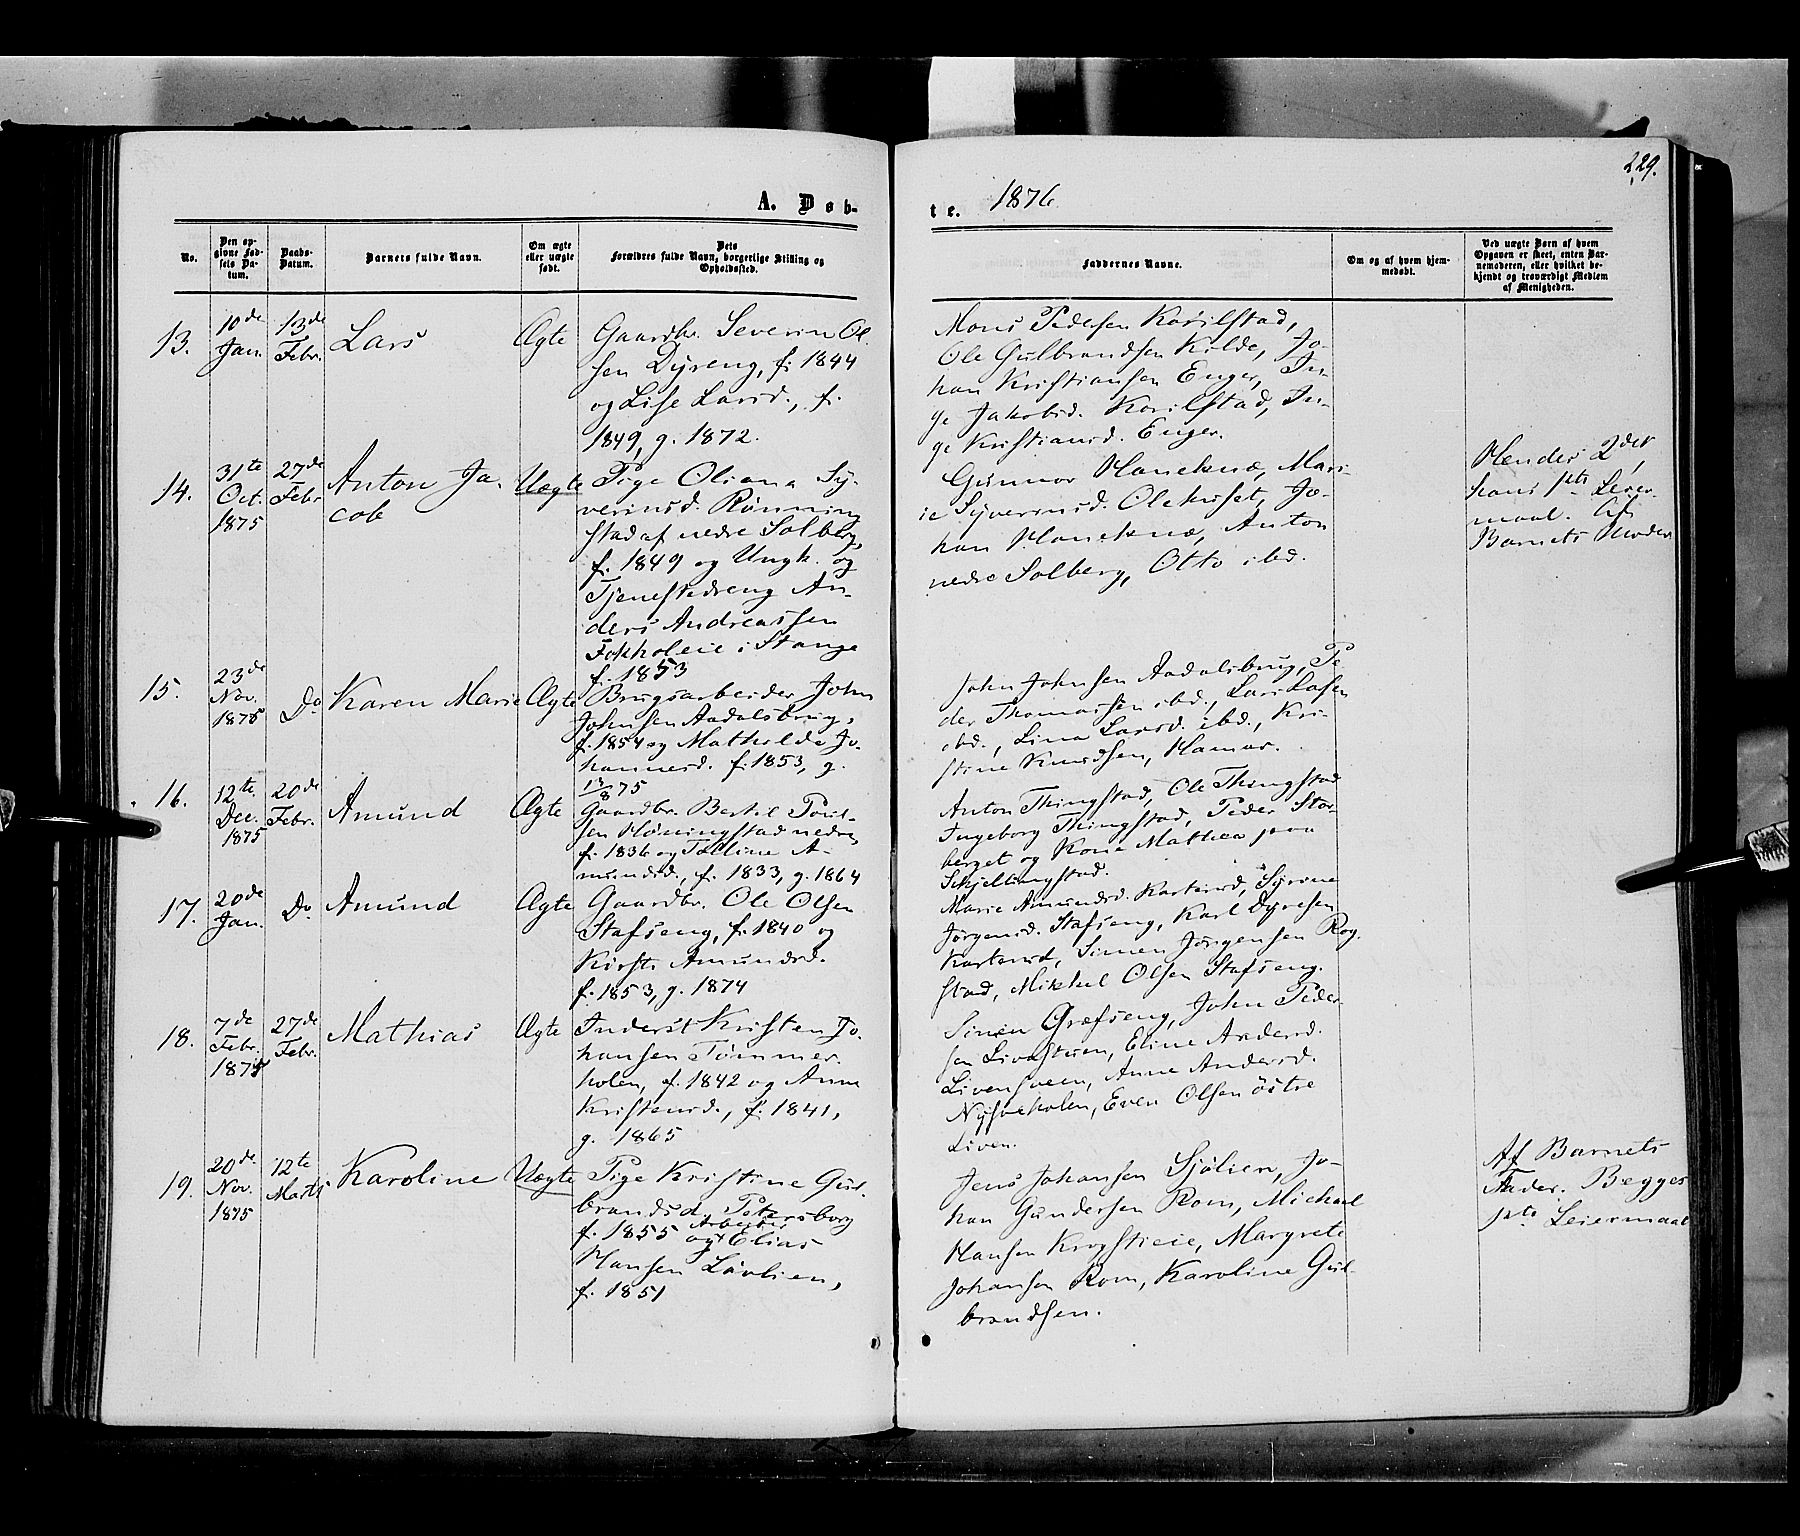 229.
A. Døb-
te. 1876
No.
Den op-
givne Fød-
sels Da-
tum.
Daabs-
Datum.
Barnets fulde Navn.
Om ægte
eller uægte
født.
Dets
Forældres fulde Navn, borgerlige Stilling og
Opholdssted.
Faddernes Navne.
Om og af hvem hjem-
medøbt.
Ved uægte Børn af hvem
Opgaven er skeet, enten Bar-
nemoderen, eller hvilket be-
kjendt og troværdigt Medlem
af Menigheden.
13.
10de
Jan.
13de
Febr.
Lars
Ægte
Gaardbr. Severin Ol-
sen Dyreng, f. 1844
og Lise Larsd., f.
1849, g. 1872.
Mons Pedersen Korilstad,
Ole Gulbrandsen Kilde, Jo-
han Kristiansen Enger, In-
ge Jakobsd. Korilstad, In-
ge Kristiansd. Enger.
14.
31te
Oct.
1875
27de
Febr
Anton Ja-
cob
Uægte
Pige Oliana Sy-
verinsd. Rønning
stad af nedre Solberg,
f. 1849 og Ungk. og
Tjenestedreng An-
ders Andreassen
Fokholeie i Stange
f. 1853
Gunnor Haneknæ, Mari-
ie Syverinsd. Olehuset, Jo-
han Haneknæ, Anton
nedre Solberg, Otto ibd.
Hendes 2det,
hans 1ste Leier-
maal. Af
Barnets Moder
15.
23de
Nov.
1875
Do
Karen Marie
Ægte
Brugsarbeider John
Johnsen Aadalsbrug,
f. 1854 og Mathilde Jo-
hannesd. f. 1853, g.
13/8 75
John Johnsen Aadalsbrug, Pe
der Thomassen ibd., Lars Larsen
ibd., Lina Larsd. ibd., Kri-
stine Knudsen, Hamar.
16.
12te
Dec.
1875
20de
Febr.
Amund
Ægte
Gaardbr. Bertel Poul-
sen Høningstad nedre,
f. 1836 og Talline A-
mundsd., f. 1833, g. 1864
Anton Thingstad, Ole Thingstad
Ingeborg Thingstad, Peder Stor-
berget og Kone Mathea paa
Skjellungstad.
17.
20de
Jan.
Do
Amund
Ægte
Gaardbr. Ole Olsen
Stafseng, f. 1840 og
Kirsti Amundsd.
f. 1853, g. 1874
Marie Amundsd. Karterud, Syverine
Jørgensd. Stafseng, Karl Dyresen
Karterud, Simen Jørgensen Rog-
stad, Mikkel Olsen Stafseng.
18.
7de
Febr.
1875
27de
Febr.
Mathias
Ægte
Inderst Kristen Jo-
hansen Tømmer-
holen, f. 1842 og Anne
Kristensd., f. 1841,
g. 1865
Simen Græfseng, John Peder-
sen Livensveen, Eline Andersd.
Livensveen, Anne Andersd.
Nysveholen, Even Olsen östre
Liven.
19.
20de
Nov.
1875
12te
Marts
Karoline
Uægte
Pige Kristine Gul-
brandsd. Petersborg
f. 1855 og Arbeider Elias
Hansen Løvlien,
f. 1851
Jens Johansen Sjølien, Jo-
han Gundersen Rom, Michael
Hansen Krogstieie, Margrete
Johansen Rom, Karoline Gul-
brandsen.
Af Barnets
Fader. Begges
1ste Leiermaal